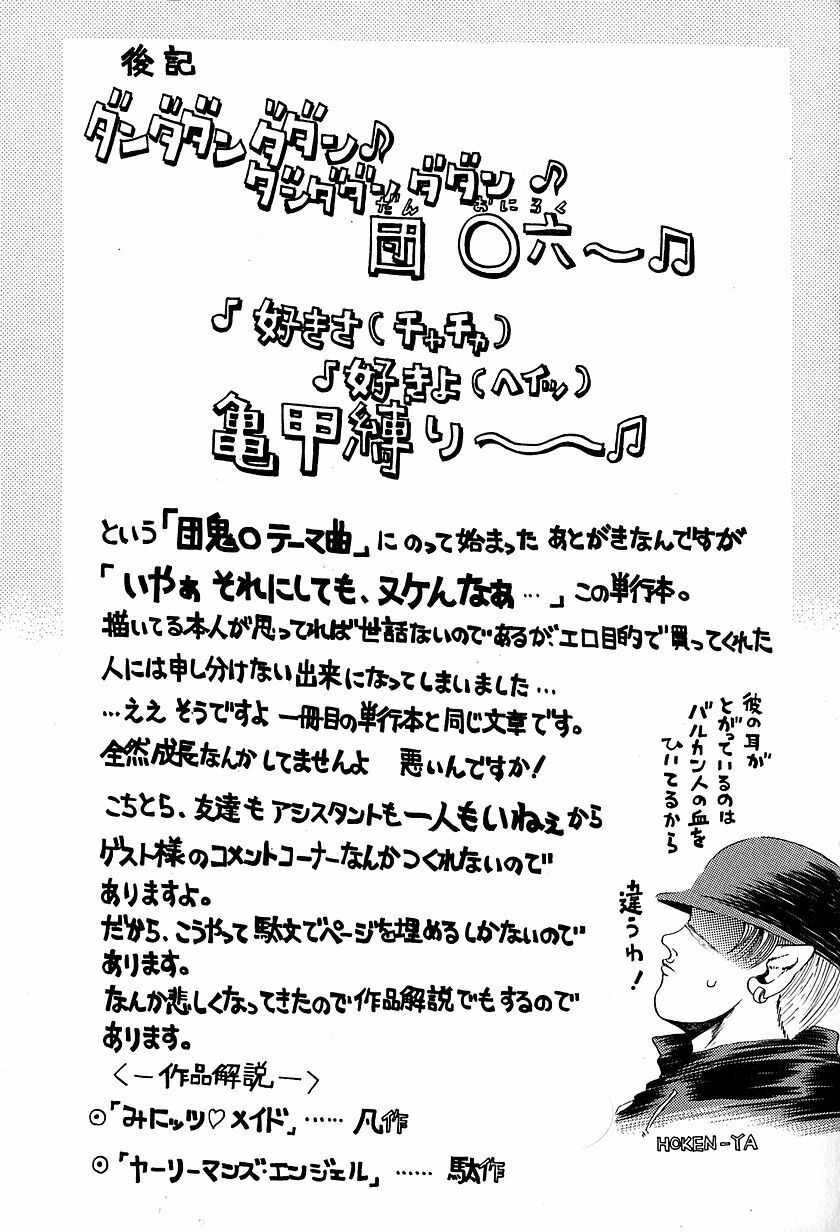 後記
ダンダダンダダン♪
ダンダダンダダン♪
だん おにろく
団〇六〜♫
♪好きさ(チャチャ)
♪好きよ(ヘイッ)
亀甲縛り〜〜♫
という「団鬼〇テーマ曲」にのって始まったあとがきなんですが
「いやぁそれにしても、ヌケんなぁ…」この単行本。
描いてる本人が思ってれば世話ないのであるが、エロ目的で買ってくれた
人には申し分けない出来になってしまいました…
…ええ そうですよ 一冊目の単行本と同じ文章です。
全然成長なんかしてませんよ 悪いんですか!
こちとら、友達もアシスタントも一人もいねぇから
ゲスト様のコメントコーナーなんかつくれないので
ありますよ。
だから、こうやって駄文でページを埋めるしかないので
あります。
なんか悲しくなってきたので作品解説でもするので
あります。
<ー作品解説ー>
◎「みにッツ♡メイド」……凡作
◎「ヤーリーマンズ・エンジェル」……駄作
彼の耳が
とがっているのは
バルカン人の血を
ひいてるから
違うわ!
HOKEN-YA